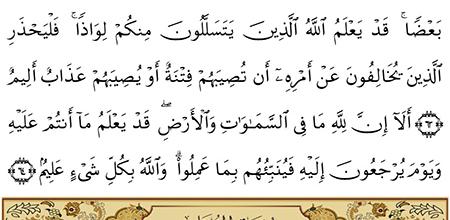 بَعْضًا ۚ قَدْ يَعْلَمُ ٱللَّهُ ٱلَّذِينَ يَتَسَلَّلُونَ مِنكُمْ لِوَاذًا ۚ فَلْيَحْذَرِ
ٱلَّذِينَ يُخَالِفُونَ عَنْ أَمْرِهِۦٓ أَن تُصِيبَهُمْ فِتْنَةٌ أَوْ يُصِيبَهُمْ عَذَابٌ أَلِيمٌ
﴿٦٣﴾ أَلَآ إِنَّ لِلَّهِ مَا فِى ٱلسَّمَٰوَٰتِ وَٱلْأَرْضِ ۖ قَدْ يَعْلَمُ مَآ أَنتُمْ عَلَيْهِ
وَيَوْمَ يُرْجَعُونَ إِلَيْهِ فَيُنَبِّئُهُم بِمَا عَمِلُوا۟ ۗ وَٱللَّهُ بِكُلِّ شَىْءٍ عَلِيمٌۢ ﴿٦٤﴾